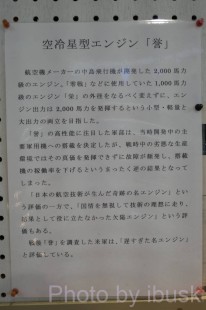 空冷星型エンジン「誉」
航空機メーカーの中島飛行機が開発した2,000馬力
級のエンジン。「零戦」などに使用していた1,000馬力
級のエンジン「栄」の外径をなるべく変えずに、エン
ジン出力は2,000馬力を発揮するという小型・軽量と
大出力の両立を目指した。
「誉」の高性能に注目した軍部は、当時開発中の主
要軍用機への搭載を決定したが、戦時中の劣悪な生産
環境ではその真価を発揮できずに故障が頻発し、搭載
機の稼働率を下げるというまったく逆の結果となって
しまった。
「日本の航空技術が生んだ奇跡の名エンジン」とい
う評価の一方で、「国情を無視して技術の理想に走り、
結果として役に立たなかった欠陥エンジン」という評
価もある。
戦後「誉」を調査した米軍は、「逆すぎた名エンジン」
と評している。
Photo by ibusk